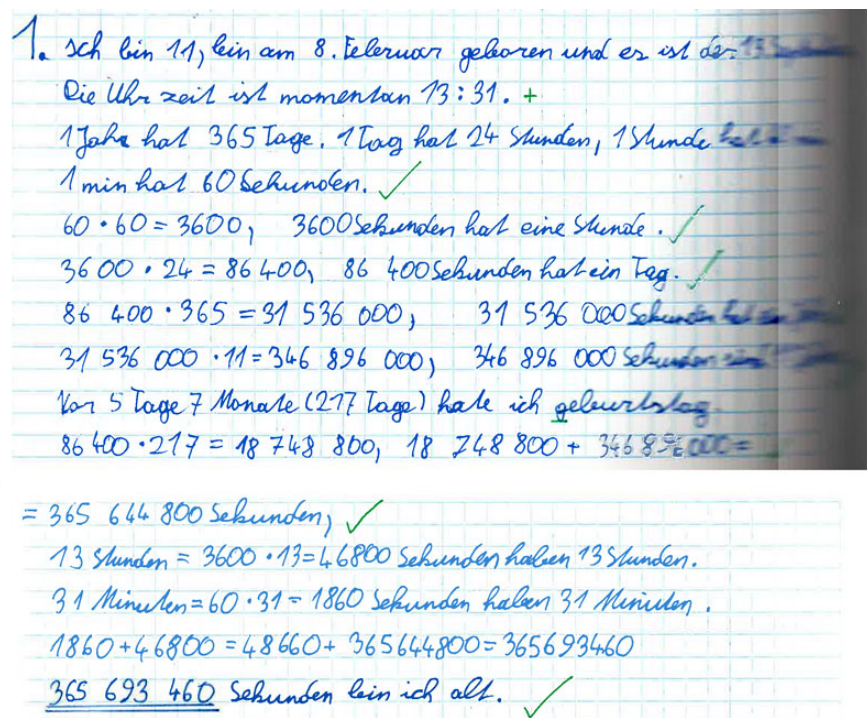 1. Ich bin 11, bin am 8. Februar geboren und es ist der 13
Die Uhr zeit ist momentan 13:31. +
1 Jahr hat 365 Tage. 1 Tag hat 24 Stunden, 1 Stunde
1 min hat 60 Sekunden. ✓
60 · 60 = 3600, 3600 Sekunden hat eine Stunde. ✓
3600 · 24 = 86 400, 86 400 Sekunden hat ein Tag. ✓
86 400 · 365 = 31 536 000, 31 536 000 Sekunden
31 536 000 · 11 = 346 896 000, 346 896 000 Sekunden
Vor 5 Tage 7 Monate (217 Tage) hate ich geburtstag
86 400 · 217 = 18 748 800, 18 748 800 + 346 896 000 =
= 365 644 800 Sekunden, ✓
13 Stunden = 3600 · 13 = 46800 Sekunden haben 13 Stunden.
31 Minuten = 60 · 31 = 1860 Sekunden haben 31 Minuten.
1860 + 46800 = 48660 + 365644800 = 365693460
365 693 460 Sekunden bin ich alt. ✓